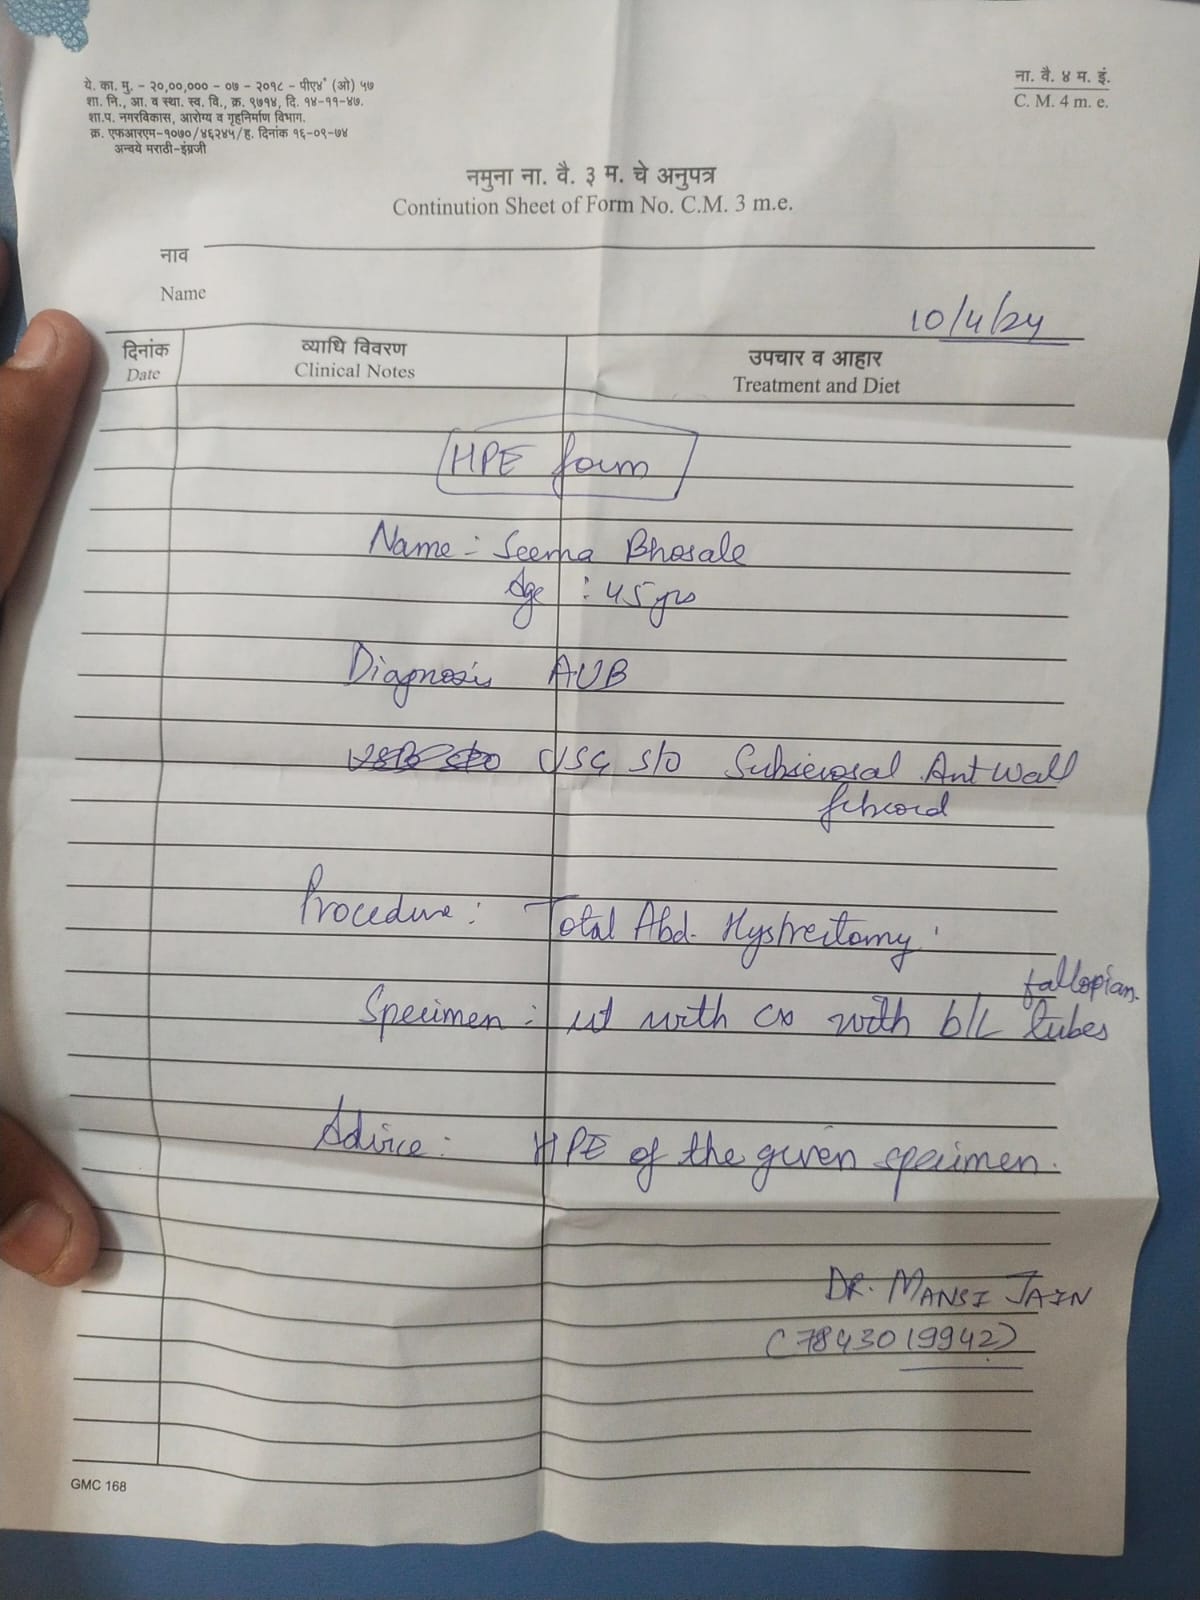 ये. का. मु. - २०,००,००० - ०७ - २०१८ - पीए४* (ओ) ५७
शा. नि., आ. व स्था. स्व. वि., क्र. ९७१४, दि. १४-११-४७.
शा.प. नगरविकास, आरोग्य व गृहनिर्माण विभाग.
क्र. एफआरएम-१०७०/४६२४५/ह. दिनांक १६-०९-७४
अन्वये मराठी-इंग्रजी
ना. वै. ४ म. इं.
C. M. 4 m. e.
नमुना ना. वै. ३ म. चे अनुपत्र
Continution Sheet of Form No. C.M. 3 m.e.
नाव
Name
10/4/24
दिनांक व्याधि विवरण उपचार व आहार
Date Clinical Notes Treatment and Diet
HPE form
Name :- Seema Bhosale
Age : 45 yrs
Diagnosis AUB
USG S/O Subserosal Ant Wall
fibroid
Procedure : Total Abd. Hystrectomy.
fallopian
Specimen : ut with cx with b/L tubes
Advice : HPE of the given specimen.
DR. MANSI JAIN
(7843019942)
GMC 168